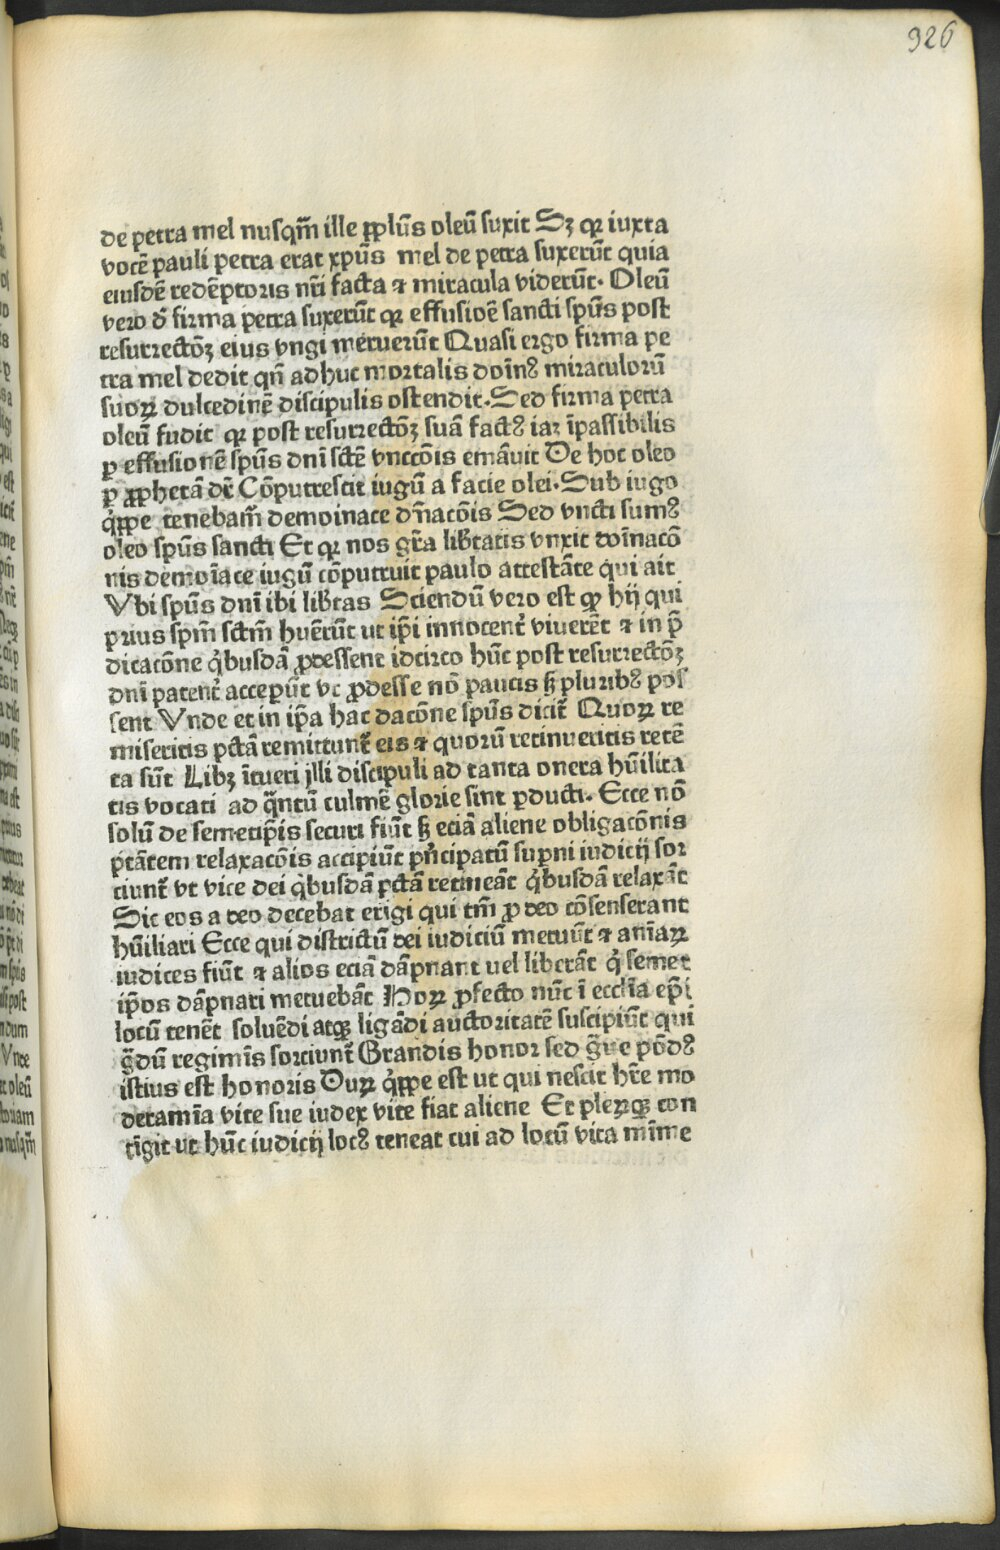 326
de petra mel nusqm̄ ille ꝓplus̄ oleū suxit Sꝫ qꝛ iuxta
vocē pauli petra erat xp̄us mel de petra suxerūt quia
eiusdē redēptoris nr̄i facta ⁊ miracula viderūt. Oleū
vero d̄ firma petra suxerūt qꝛ effusiōe sancti spūs post
resurrectōꝫ eius vngi meruerūt Quasi ergo firma pe
tra mel dedit qn̄ adhuc mortalis doīnꝰ miraculorū
suoꝝ dulcedinē discipulis ostendit. Sed firma petra
oleū fudit qꝛ post resurrectōꝫ suā factꝰ iaꝫ īpassibilis
ꝑ effusionē spūs dnī sctē vnccōis emāuit De hoc oleo
ꝑ ꝓphetā dr̄ Cōputrescit iugū a facie olei. Sub iugo
q̇ꝓpe tenebam̄ demoinace dn̄acōis Sed vncti sumꝰ
oleo spūs sancti Et qꝛ nos gr̄a lib̄tatis vnxit doīnacō
nis demoīace iugū cōputruit paulo attestāte qui ait
Vbi spūs dnī ibi lib̄tas Sciendū vero est ꝙ hij qui
prius spm̄ sctm̄ huērūt ut ip̄i innocent̓ viverēt ⁊ in p̄
dicacōne q̇busdā ꝓdessent idcirco hūc post resurrectōꝫ
dnī patent̓ accepūt vt ꝓdesse nō paucis sꝫ pluribꝰ pos
sent Vnde et in ip̄a hac dacōne spūs dicit̄ Quoꝝ re
miseritis pctā remittunt̄ eis ⁊ quorū retinueritis retē
ta sūt Libꝫ ītueri jlli discipuli ad tanta onera hūilita
tis vocati ad q̄ntū culmē glorie sint ꝑducti. Ecce nō
solū de semetip̄is securi fiūt sꝫ eciā aliene obligacōnis
p̄tātem relaxacōis accipiūt pn̓cipatū supni iudicij sor
ciunt̄ vt vice dei q̇busdā pctā retineāt q̇busdā relaxāt
Sic eos a deo decebat erigi qui tm̄ ꝓ deo cōsenserant
hūiliari Ecce qui districtū dei iudiciū metuūt ⁊ anīaꝝ
iudices fiūt ⁊ alios eciā dāpnant uel liberāt q̇ semet
ip̄os dāpnari metuebāt Hoꝝ ꝓfecto nūc ī ecclīa ep̄i
locū tenēt soluēdi atqꝫ ligādi auctoritatē suscipiūt qui
g̓dū regimīs sorciunt̄ Grandis honor sed g̓ue pōdꝰ
istius est honoris Duꝝ q̇ꝓpe est ut qui nescit hr̄e mo
deramīa vite sue iudex vite fiat aliene Et pleꝝqꝫ con
tīgit ut hūc iudicij locꝰ teneat cui ad locū vita mīme